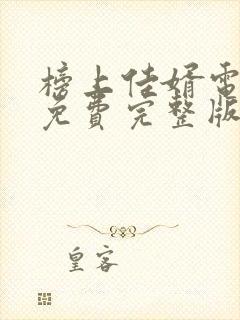 榜上佳婿電
免費完整版
皇客